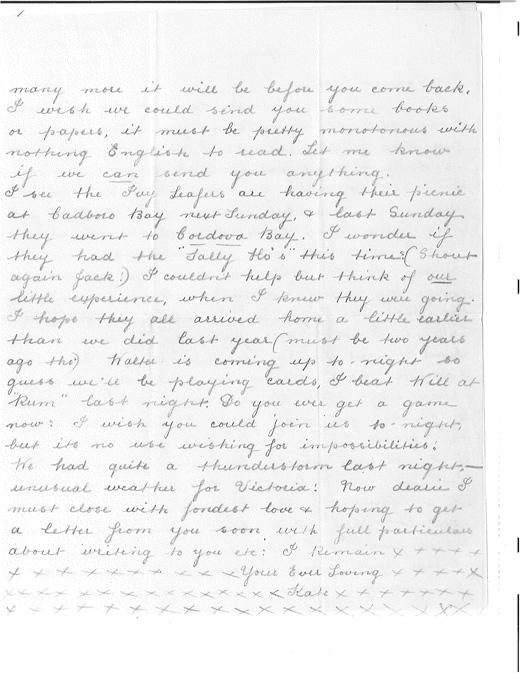 many more it will be before you come back.
I wish we could send you some books
or papers, it must be pretty monotonous with
nothing English to read. Let me know
if we can send you anything.
I see the Leafers are having their picnic
at Cadboro Bay next Sunday, & last Sunday
they went to Cordova Bay. I wonder if
they had the "Tally Ho's" this time? (Shout
again Jack!) I couldn't help but think of our
little experience, when I knew they were going.
I hope they all arrived home a little earlier
than we did last year (must be two years
ago tho') Walter is coming up to-night so
guess we'll be playing cards, I beat Will at
"Rum" last night. Do you ever get a game
now? I wish you could join us to-night,
but its no use wishing for impossibilities!
We had quite a thunderstorm last night,—
unusual weather for Victoria! Now dearie I
must close with fondest love & hoping to get
a letter from you soon with full particulars
about writing to you etc: I Remain x + + + +
x x x x x x x x x x x Your Ever Loving x + + + + x
x x x x x x x x x x x x x x Kate x x x x x x x
x x x x x x x x x x x x x x x x x x x x x x